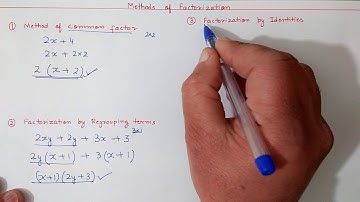 Methods of Factorization
① Method of common factor
2x + 4
2x2
2x + 2×2
2 (x + 2) ✓
② Factorization by Regrouping terms
2xy + 2y + 3x + 3
3x1
2y(x+1) + 3(x+1)
(x+1)(2y+3) ✓
③ Factorization by Identities